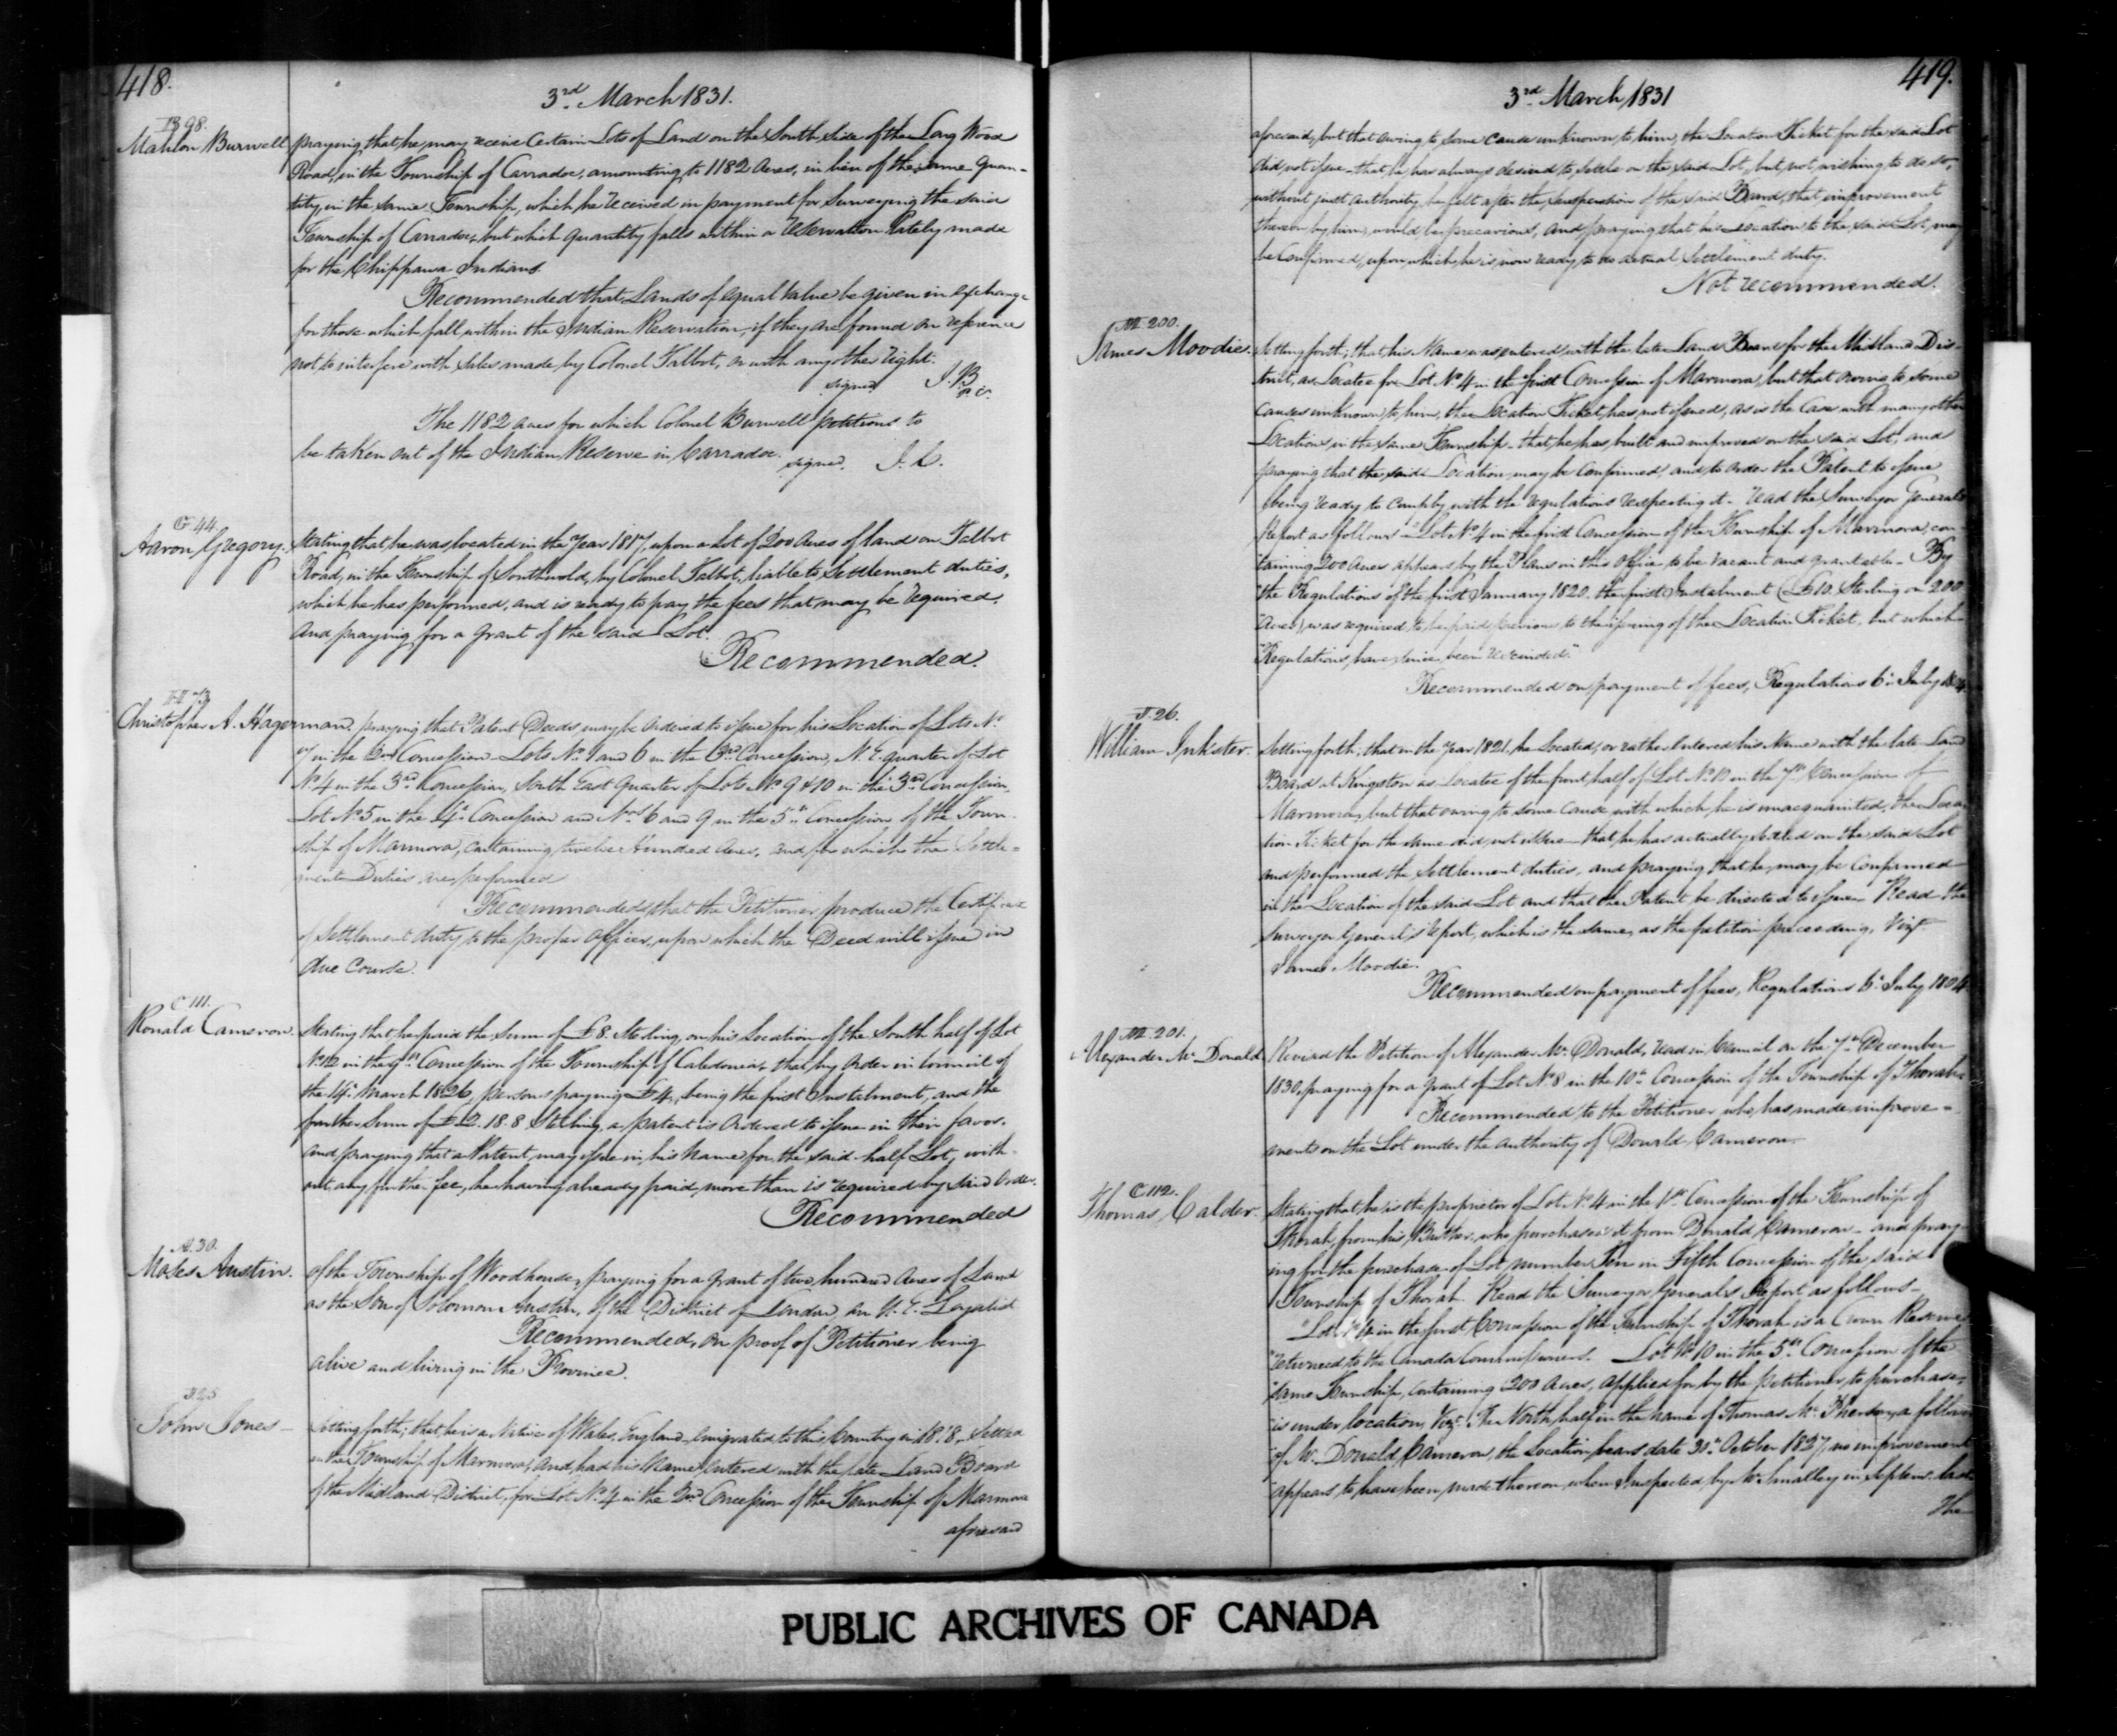 418.
3rd March 1831.
B 98.
Mahlon Burwell praying that he may receive Certain Lots of Land on the South side of the Long Wood
Road, in the Township of Carradoc, amounting to 1182 Acres, in lieu of the same Quan-
tity, in the same Township, which he received in payment for Surveying the said
Township of Carradoc, but which Quantity falls within a Reservation lately made
for the Chippawa Indians.
Recommended that Lands of equal value be given in exchange
for those which fall within the Indian Reservation, if they are found on reference
not to interfere with sales made by Colonel Talbot, or with any other right.
signed J. B
P. C.
The 1182 acres for which Colonel Burwell petitions to
be taken out of the Indian Reserve in Carradoc.
signed. J. C.
G 44.
Aaron Gregory. Stating that he was located in the Year 1817, upon a Lot of 200 Acres of land on Talbot
Road, in the Township of Southwold, by Colonel Talbot, liable to Settlement duties,
which he has performed, and is ready to pay the fees that may be required.
And praying for a Grant of the said Lot.
Recommended.
H 73
Christopher A. Hagerman. praying that Patent Deeds may be Ordered to issue for his Location of Lots No.
7 in the 2nd Concession Lots No. 1 and 6 in the 3rd Concession, N. E. quarter of Lot
No. 4 in the 3rd Concession, South East Quarter of Lots No. 9 & 10 in the 3rd Concession,
Lot No. 5 in the 4th Concession and Nos. 6 and 9 in the 5th Concession of the Town-
ship of Marmora, containing twelve Hundred Acres, and for which the Settle-
ment Duties are performed
Recommended that the Petitioner produce the Certificate
of Settlement duty to the proper Officer, upon which the Deed will issue in
due Course.
C 111.
Ronald Cameron. Stating that he paid the Sum of £8. Sterling, on his Location of the South half of Lot
No. 12 in the 9th Concession of the Township of Caledonia, that by Order in Council of
the 14th March 1826, persons praying £4, being the first Instalment, and the
further Sum of £2. 18. 8 Sterling, a patent is Ordered to issue in their favor.
And praying that a Patent, may issue in his Name for the said half Lot, with-
out any further fee, he having already paid more than is required by said Order.
Recommended
A. 30.
Moses Austin. Of the Township of Woodhouse, praying for a Grant of two hundred Acres of Land
as the Son of Solomon Austin, Of the District of London an U. E. Loyalist
Recommended, On proof of Petitioner being
alive and living in the Province.
John Jones - Setting forth; that he is a Native of Wales, England, emigrated to this Country in 1818, Settled
in the Township of Marmora, And had his Name entered with the late Land Board
of the Midland District, for Lot No. 4 in the 2nd Concession of the Township of Marmora
aforesaid
419.
3rd March 1831
aforesaid, but that owing to some cause unknown to him, the Location Ticket for the said Lot
did not issue - that he has always desired to settle on the said Lot, but not wishing to do so,
without just Authority, he felt after the suspension of the said Board, that improvement
thereon by him, would be precarious, And praying that his Location to the said Lot, may
be Confirmed, upon which he is now ready to do actual Settlement duty.
Not recommended.
M. 200.
James Moodie. Setting forth; that his Name was entered with the late Land Board for the Midland Dis-
trict, as Locatee for Lot No. 4 in the first Concession of Marmora, but that owing to some
causes unknown to him, the Location Ticket has not issued, as is the Case with many other
Locations in the same Township - that he has built and improved on the said Lot, and
praying that the said Location may be Confirmed, and to Order the Patent to issue
being ready to comply with the regulations respecting it - Read the Surveyor Generals
Report as follows "Lot No. 4 in the first Concession of the Township of Marmora, con-
"taining 200 Acres appears by the Plans in this Office, to be vacant and grantable - By
"the Regulations of the first January 1820. the first Instalment (£10. Sterling on 200
"Acres) was required to be paid previous to the issuing of the Location Ticket, but which
"Regulations, have since been rescinded."
Recommended on payment of fees, Regulations 6th July 1804
J. 26.
William Inkster. Setting forth; that in the Year 1821, he located, or rather Entered his Name with the late Land
Board at Kingston as Locatee of the front half of Lot No. 10 in the 7th Concession of
Marmora, but that owing to some Cause with which he is unacquainted, the Loca-
tion Ticket for the same did not issue - that he has actually settled on the said Lot
and performed the Settlement duties, and praying that he may be Confirmed
in the Location of the said Lot and that the Patent be directed to issue - Read the
Surveyor General's report, which is the same, as the petition preceeding, Vizt.
James Moodie.
Recommended on payment of fees, Regulations 6th July 1804
M. 201.
Alexander Mc Donald Revised the Petition of Alexander Mc. Donald, read in Council on the 7th December
1830, praying for a grant of Lot No. 8 in the 10th Concession of the Township of Thorah
Recommended to the Petitioner who has made improve-
ments on the Lot under the authority of Donald Cameron.
C 112.
Thomas Calder. Stating that he is the proprietor of Lot No. 4 in the 1st Concession of the Township of
Thorah, from his Brother, who purchased it from Donald Cameron - and pray-
ing for the purchase of Lot number Ten in Fifth Concession of the said
Township of Thorah. Read the Surveyor General's Report as follows -
"Lot No. 4 in the first Concession of the Township of Thorah is a Crown Reserve
"returned to the Canada Commissioners. Lot No. 10 in the 5th Concession of the
"same Township, containing 200 Acres, applied for by the petitioner, to purchase,
"is under location, Vizt. The North half in the name of Thomas Mc. Pherson, a follower
"of Mr. Donald Cameron, the Location bears date 30th October 1827, no improvement
"appears to have been made thereon when Inspected by Mr. Smalley in Septemr. last
The
PUBLIC ARCHIVES OF CANADA